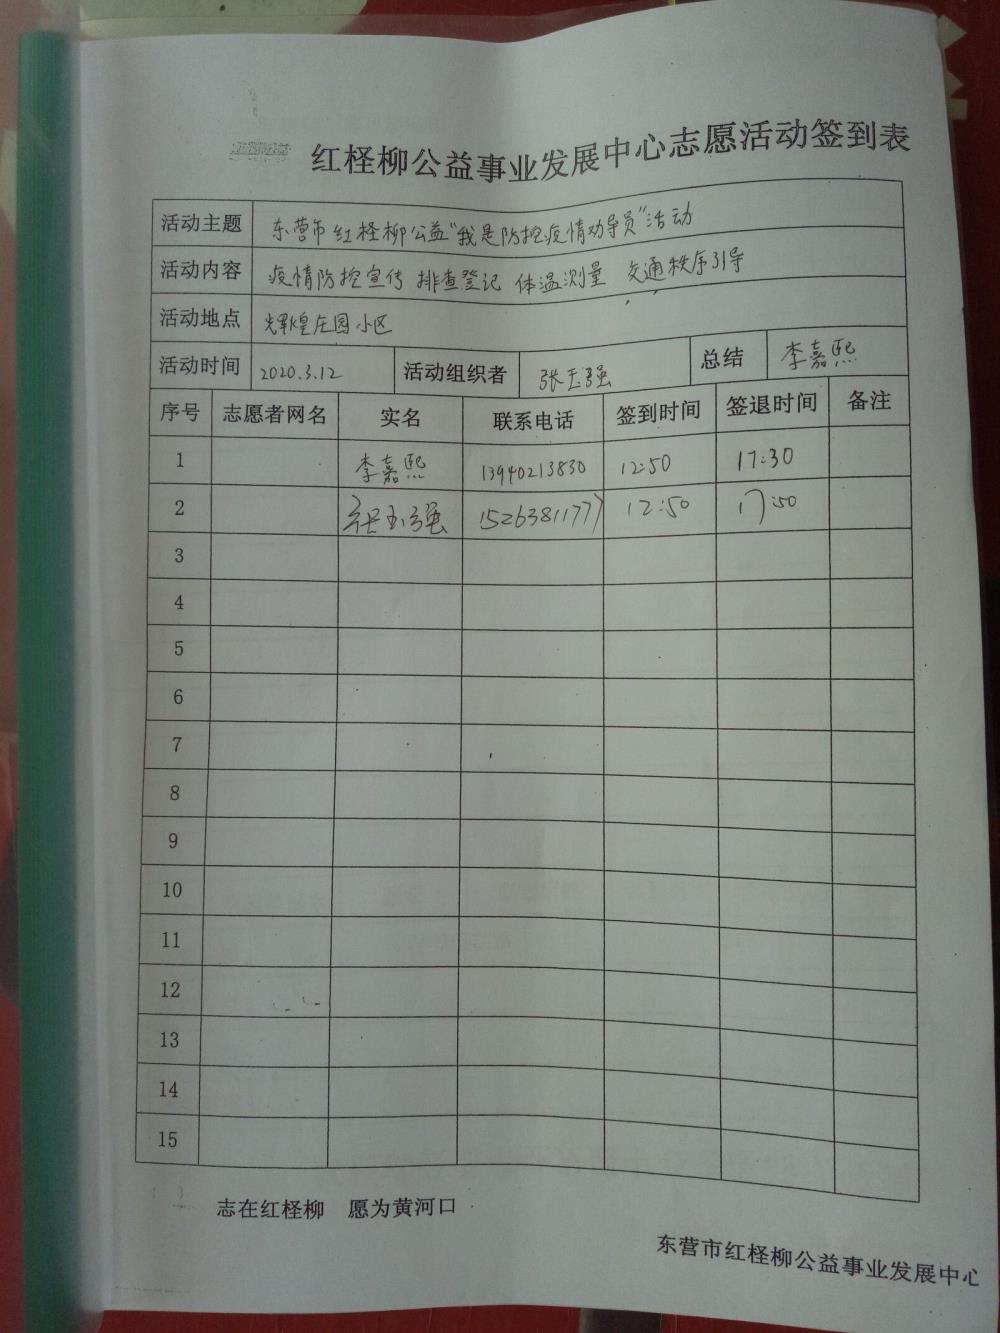 红柽柳公益事业发展中心志愿活动签到表
活动主题 东营市红柽柳公益“我是防控疫情劝导员”活动
活动内容 疫情防控宣传 排查登记 体温测量 交通秩序引导
活动地点 辉煌庄园小区
活动时间 2020.3.12 活动组织者 张玉强 总结 李嘉熙
序号 志愿者网名 实名 联系电话 签到时间 签退时间 备注
1 李嘉熙 13940213830 12:50 17:30
2 张玉强 15263811777 12:50 17:50
3
4
5
6
7
8
9
10
11
12
13
14
15
志在红柽柳 愿为黄河口
东营市红柽柳公益事业发展中心